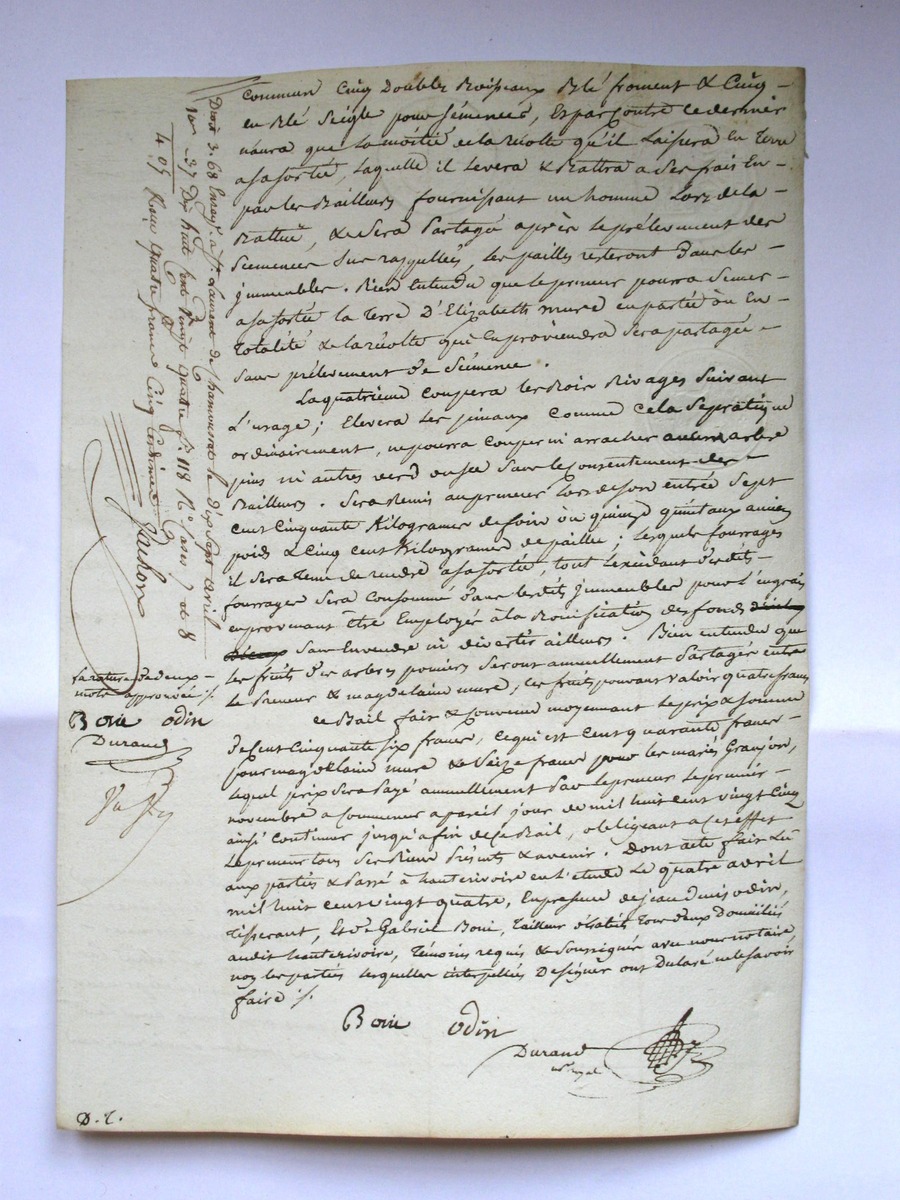 commun Cinq Doubles Boisseaux Blé froment & Cinq
en Blé Seigle pour Semences, Et par Contre ce dernier
n'aura que La moitié de la Récolte qu'il Laissera En Terre
a sa sortie, Laquelle il Levera & Battra a Ses frais En
par les Bailleurs fournissant un homme Lors de la
Battue, & Sera Partagé après Le prélevement des
Semences Sus rappellées, Les pailles resteront Dans les
jmmeubles. Bien Entendu que le preneur pourra Semer
a sa sortie la Terre D'Elizabeth mure en partie ou En
Totalité & la récolte qui En proviendra Sera partagée
Sans prélevement de Semence.
La quatrieme coupera les Bois Rivages Suivant
L'usage; Elevera Les pinaux Comme cela Se pratique
ordinairement, ne pourra couper ni arracher aucun arbre
pins ni autres verd ou sec Sans le Consentement des
Bailleurs. Sera Remis au preneur Lors de son entrée Sept
Cent Cinquante Kilogrames de foin ou quinze quintaux ancien
poids & Cinq cent Kilogrames de paille; lesquels fourrages
il Sera Tenu de rendre a sa sortie, tout L'excédant desdits
fourrages Sera Consommé dans lesdits jmmeubles pour L'engrais
en provenant Etre Employés à la Bonification des fonds
Sans En vendre ni divertir ailleurs. Bien entendu que
Les fruits des arbres pomiers Seront annuellement Partagés entre
Le Preneur & magdelaine mure, les fruits pouvant Valoir quatre francs
Ce Bail fait & Convenu moyennant Le prix & Somme
De Cent Cinquante Six francs, Ce qui est Cent quarante francs
pour magdelaine mure & Seize francs pour les mariés Granjon,
Lequel prix Sera Payé annuellement par Le preneur Le premier
novembre a Commencer a pareil jour de mil huit cent vingt Cinq
ainsi Continuer jusqu'a fin de ce Bail, obligeant a Cet effet
Le preneur tous Ses Biens Présents & avenir. Dont acte fait Lu
aux parties & Passé à hauterivoire en L'étude Le quatre avril
mil huit cent vingt quatre, En presence de jean Denis odin,
Tisserant, Et Gabriel Boni, Tailleur d'habits Tous deux Domiciliés
audit hauterivoire, Témoins requis & Soussignés avec nous notaire,
non les parties Lesquelles interpellées De Signer ont Declaré ne le Savoir
faire ./.
Boni odin
Durand
n.re royal
La rature de deux
mots approuvée ./.
Boni odin
Durand
Droit 3. 68 Enreg. a St Laurent de Chamousset le dix Sept avril
10.e .. 37 Dix huit cent vingt quatre f.o 118 R.o Cases 7 et 8
4. 05 Reçu quatre francs Cinq Centimes
D. T.